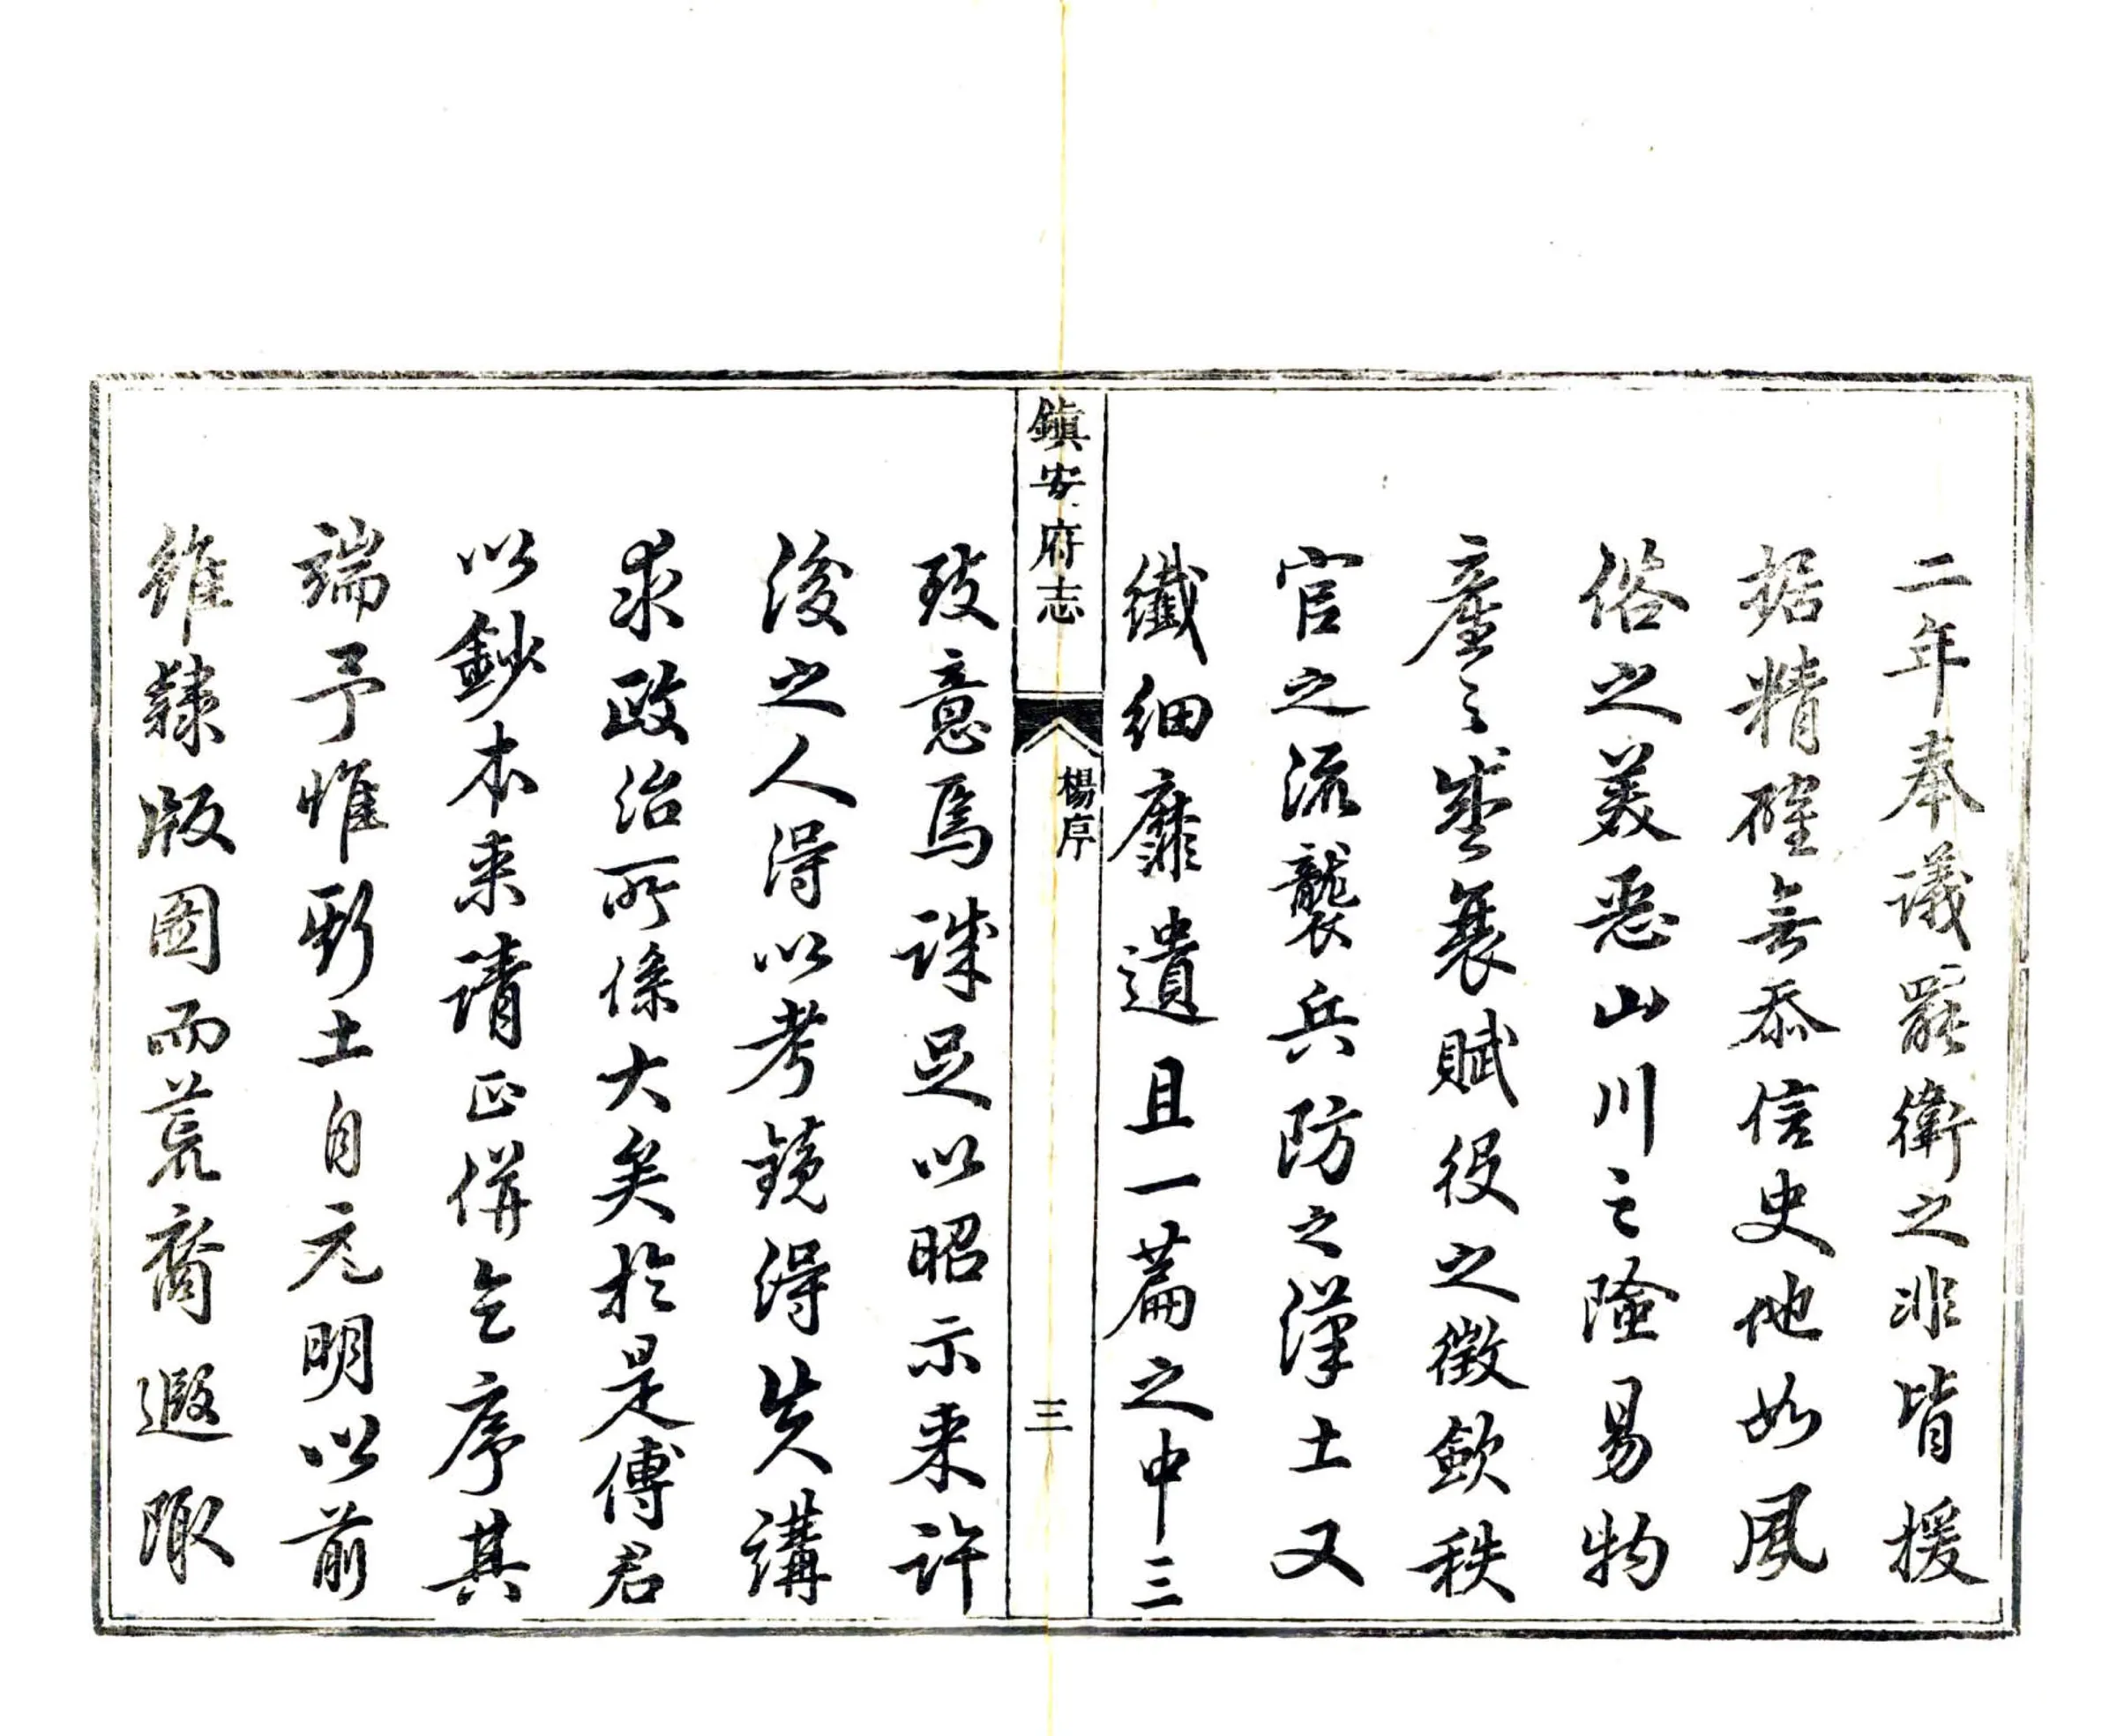 二年奉議罷衛之非皆援
据精確無忝信史他如風
俗之美惡山川之險易物
產之盛衰賦役之徵歛秩
官之流襲兵防之漢土又
纖細靡遺且一篇之中三
鎮安府志
楊序
三
致意焉誠足以昭示来許
後之人得以考鏡得失講
求政治所係大矣於是傅君
以鈔本来請正併乞序其
端予惟斯土自元明以前
雖隸版圖而荒裔遐陬